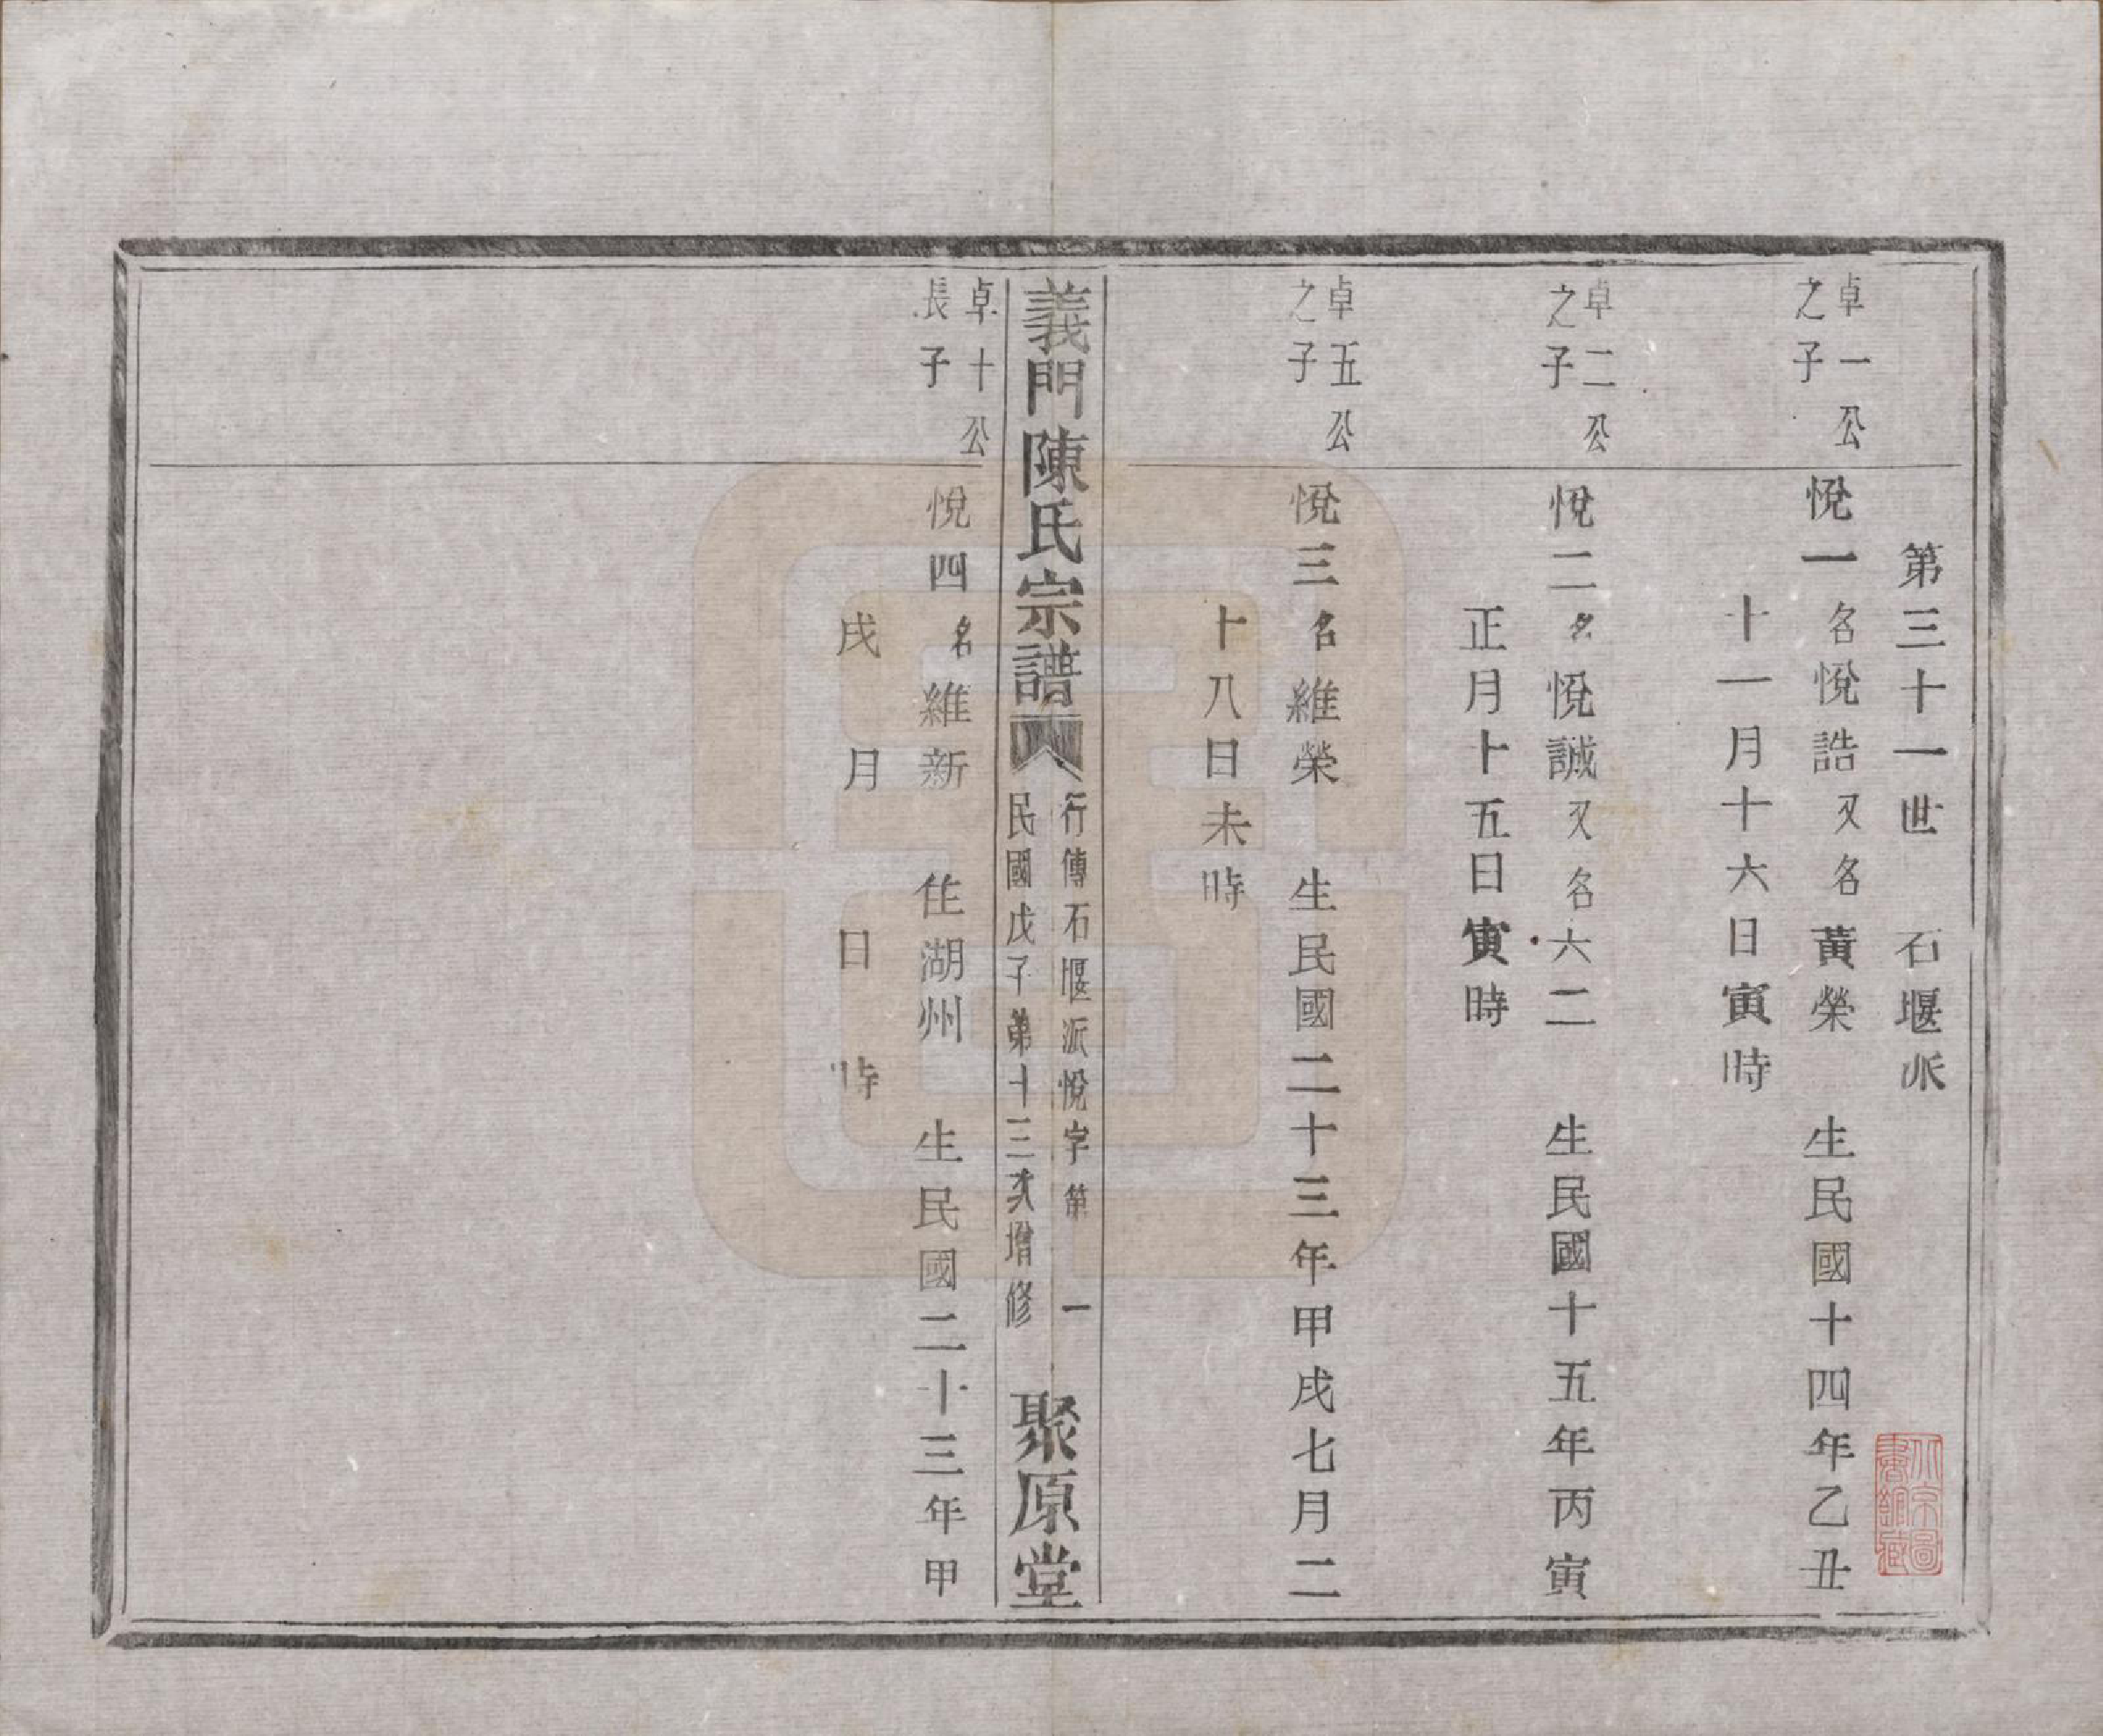 第三十一世　石堰派
卓一公
之子
悅一名悅誥又名黃榮　生民國十四年乙丑
十一月十六日寅時
卓二公
之子
悅二名悅誠又名六二　生民國十五年丙寅
正月十五日寅時
卓五公
之子
悅三名維榮　生民國二十三年甲戌七月二
十八日未時
義門陳氏宗譜
行傳石堰派悅字第　一
民國戊子第十三次增修
聚原堂
卓十公
長子
悅四名維新　住湖州　生民國二十三年甲
戌　月　日　時